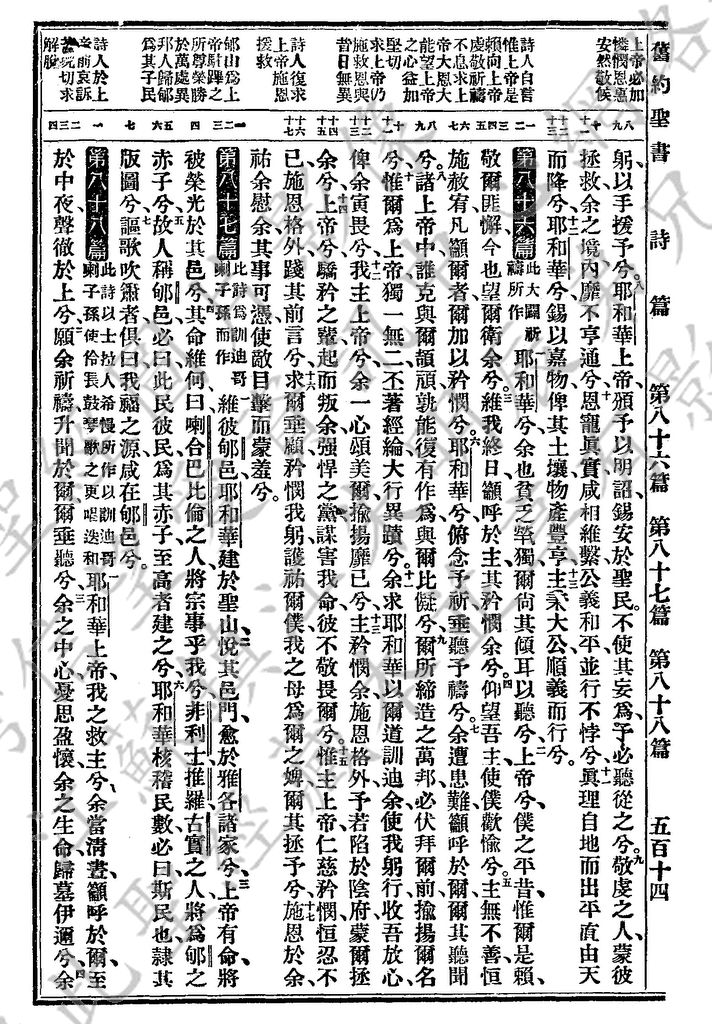 舊約聖書 詩篇 第八十六篇 第八十七篇 第八十八篇 五百十四
上帝必加
憐憫恩惠
安然敬候
詩人自言
惟上帝是
賴向上帝
虔敬祈禱
不息求上
帝大恩大
能望上帝
之心益加
堅切
求上帝仍
施救恩與
昔日無異
詩人復求
上帝施恩
援救
郇山爲上
帝駐蹕之
所尊榮勝
於萬處異
邦人歸郇
爲其子民
詩人於上
帝前哀訴
苦況切求
解脫
躬以手援予兮耶和華上帝頒予以明詔錫安於聖民不使其妄爲予必聽從之兮敬虔之人蒙彼
拯救余之境內靡不亨通兮恩寵眞實咸相維繫公義和平並行不悖兮眞理自地而出平直由天
而降兮耶和華兮錫以嘉物俾其土壤物產豐亨主秉大公順義而行兮
第八十六篇 此大闢祈禱所作 耶和華兮余也貧乏煢獨爾尙其傾耳以聽兮上帝兮僕之平昔惟爾是賴
敬爾匪懈今也望爾衞余兮維我終日籲呼於主其矜憫余兮仰望吾主使僕歡愉兮主無不善恒
施赦宥凡籲爾者爾加以矜憫兮耶和華兮俯念予祈垂聽予禱兮余遭患難籲呼於爾爾其聽聞
兮諸上帝中誰克與爾頡頏孰能復有作爲與爾比儗兮爾所締造之萬邦必伏拜爾前揄揚爾名
兮惟爾爲上帝獨一無二丕著經綸大行異蹟兮余求耶和華以爾道訓迪余使我躬行收吾放心
俾余寅畏兮我主上帝兮余一心頌美爾揄揚靡已兮主矜憫余施恩格外予若陷於陰府蒙爾拯
余兮上帝兮驕矜之輩起而叛余强悍之黨謀害我命彼不敬畏爾兮惟主上帝仁慈矜憫恒忍不
已施恩格外踐其前言兮求爾垂顧矜憫我躬護祐爾僕我之母爲爾之婢爾其拯予兮施恩於余
祐余慰余其事可憑使敵目擊而蒙羞兮
第八十七篇 此詩爲訓迪哥喇子孫而作 維彼郇邑耶和華建於聖山悅其邑門愈於雅各諸家兮上帝有命將
被榮光於其邑兮其命維何曰喇合巴比倫之人將宗事乎我兮非利士推羅古實之人將爲郇之
赤子兮故人稱郇邑必曰此民彼民爲其赤子至高者建之兮耶和華核稽民數必曰斯民也隸其
版圖兮謳歌吹簫者俱曰我福之源咸在郇邑兮
第八十八篇 此詩以士拉人希慢所作以訓迪哥喇子孫使伶長鼓琴歌之更唱迭和 耶和華上帝我之救主兮余當清晝籲呼於爾至
於中夜聲徹於上兮願余祈禱升聞於爾爾垂聽兮余之中心憂思盈懷余之生命歸墓伊邇兮余